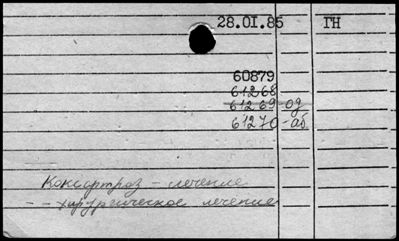 28.01.85 ГН
60879
61268
61269-од
61270-аб
Коксартроз - лечение
- хирургическое лечение